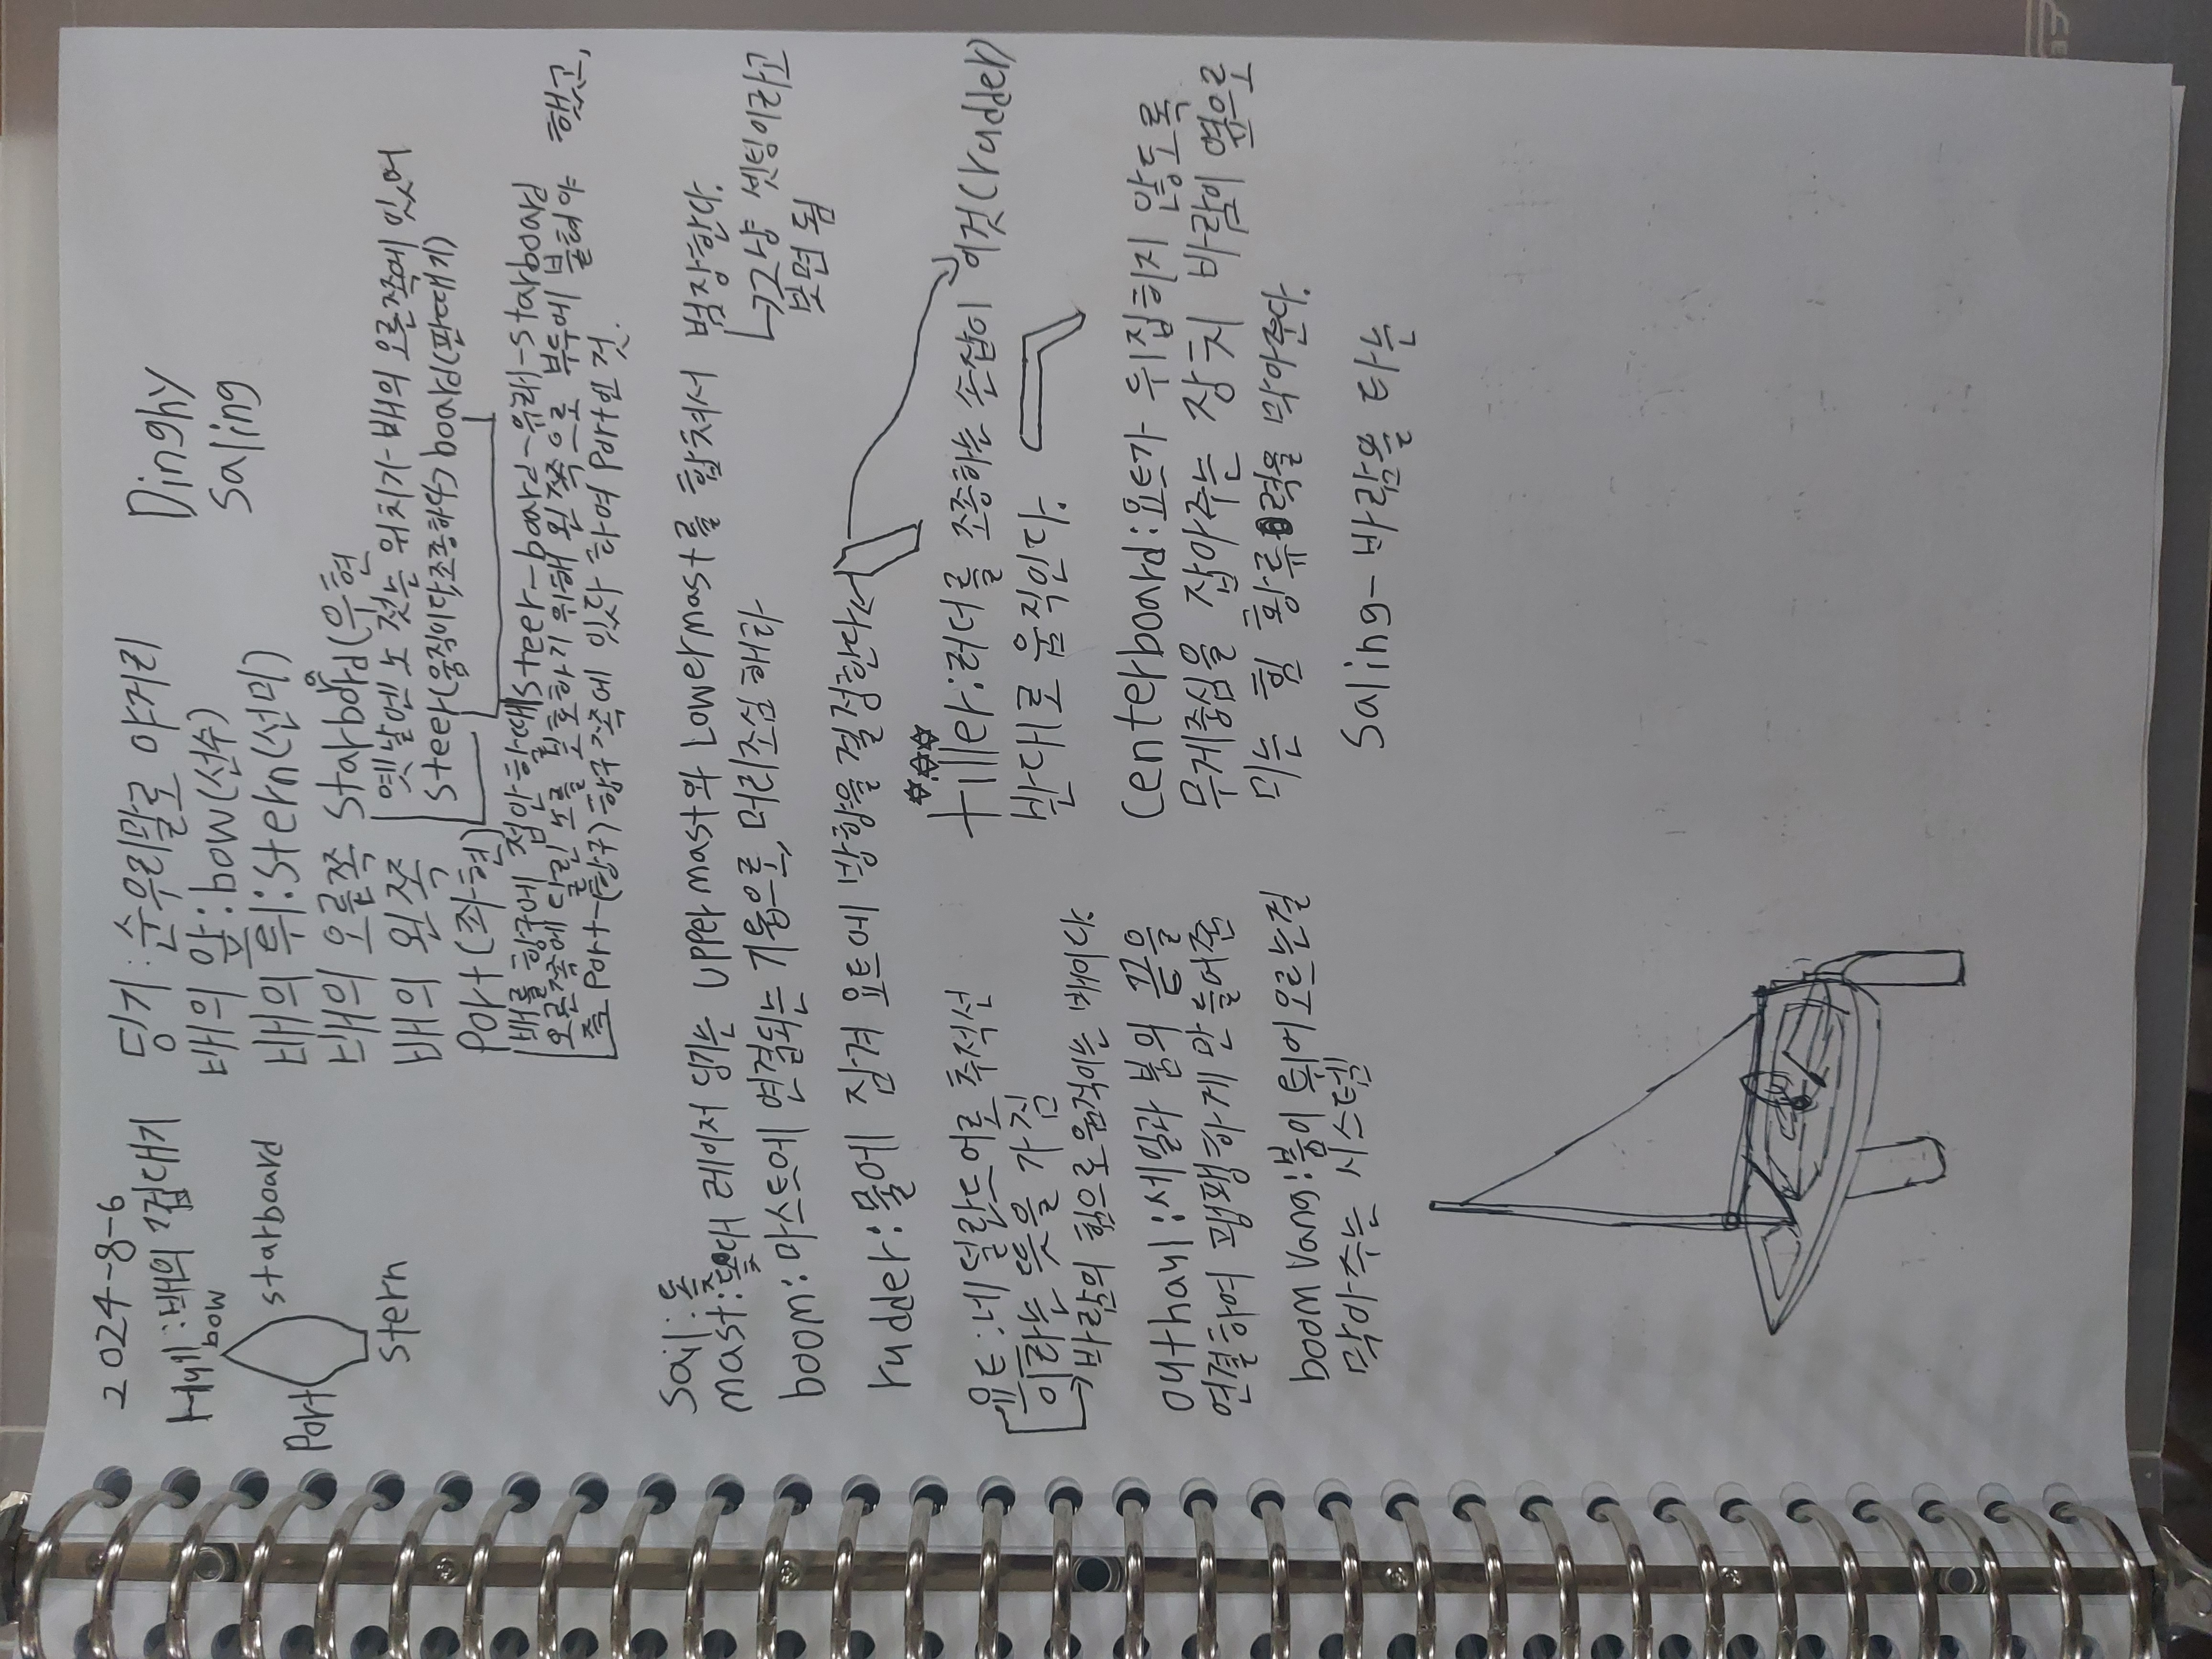 2024-8-6
Dinghy
Saling
헐 : 배의 껍대기
bow
starboard
Port
Stern
딩기 : 순우리말로 야거리
배의 앞 : bow(선수)
배의 뒤 : Stern(선미)
배의 오른쪽 starboard(우현
옛날엔 노 젓는 위치가-배의 오른쪽에 있어
steer(움직이다,조종하다)board(판때기)
배의 왼쪽
Port(좌현)
배를 항구에 접안할때 steer-board-유래-starboard
오른쪽에 달린 노를 보호하기 위해 왼쪽으로 부두에 붙혀야 했고,
즉 Port-(항구)-항구 쪽에 있다 하여 Port인 것.
Sail : 돛
mast : 돛대 레이저 딩기는 upper mast와 Lower mast를 합쳐서 범장한다.
그냥 셋팅이라고
보면 됨
boom : 마스트에 연결되는 기둥으로, 머리조심해라
rudder : 물에 잠겨 요트에 방향을 결정한다
이것(rudder)
tiller : 러더를 조종하는 손잡이
반대로 움직인다.
요트 : 네덜란드어로 추적선
이라는 뜻을 가짐
바람의 힘으로 움직이는 배이다.
Centerboard : 요트가 뒤집히지 않도록
무게중심을 잡아주는 장치 바람이 옆으로
미는 힘 횡류력을 막아준다.
outhaul : 세일과 붐의 끝을
연결하여 팽팽하게 만들어준
boom Vang : 붐이 튀어오르는걸
막아주는 시스템
Saling-바람을 타는